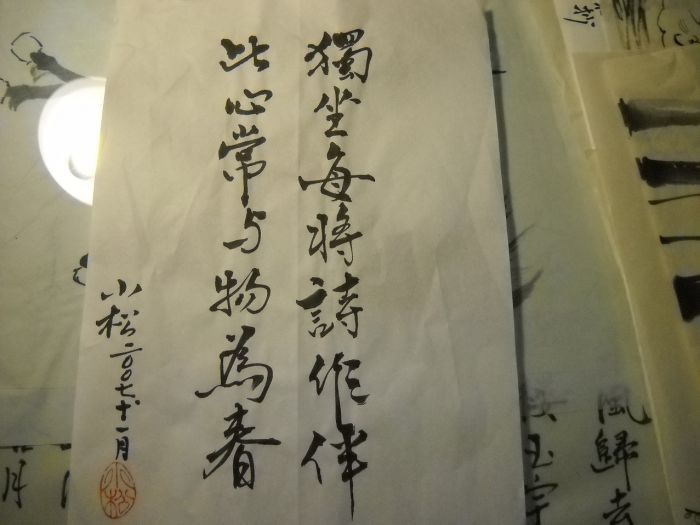 獨坐每將詩作伴
此心常与物為春
小松二〇〇七.十一月
小松
風歸去
玉宇
月